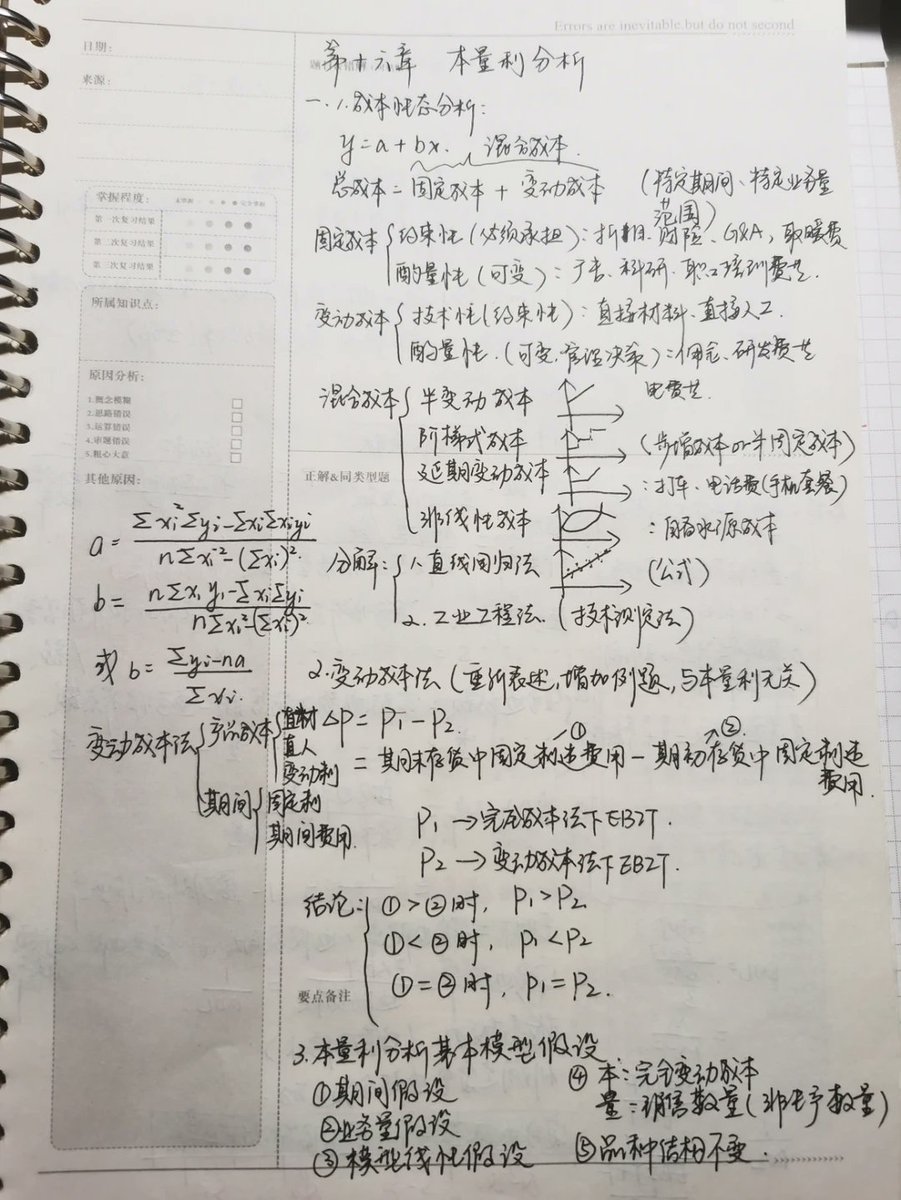 Errors are inevitable, but do not second
日期:
来源:
掌握程度:
第一次复习结果
第二次复习结果
第三次复习结果
所属知识点:
原因分析:
1.概念模糊
2.思路错误
3.运算错误
4.审题错误
5.粗心大意
其他原因:
a = (Σxi²Σyi-ΣxiΣxiyi)/(nΣxi²-(Σxi)²)
b = (nΣxiyi-ΣxiΣyi)/(nΣxi²-(Σxi)²)
或 b = (Σyi-na)/Σxi
变动成本法
产品成本
直材
直人
变动制
期间
固定制
期间费用
第十六章 本量利分析
一、1.成本性态分析:
y=a+bx. 混合成本.
总成本=固定成本+变动成本 (特定期间、特定业务量
范围)
固定成本 约束性(必须承担):折旧、财险、G&A,取暖费
酌量性(可变):广告、科研、职工培训费等.
变动成本 技术性(约束性):直接材料、直接人工
酌量性.(可变,管理决策):佣金、研发费等
混合成本 半变动成本 电费等
阶梯式成本 (步增成本or半固定成本)
延期变动成本 :打车、电话费(手机套餐)
正解&同类型题
非线性成本 :用自来水源成本
分解: 1.直线回归法 (公式)
2.工业工程法. (技术测定法)
2.变动成本法(重新表述,增加例题,与本量利无关)
△P=P1-P2
=期末存货中固定制造费用①-期初存货中固定制造②
费用.
P1→完全成本法下EBIT.
P2→变动成本法下EBIT.
结论: ①>②时, P1>P2
①<②时, P1<P2
①=②时, P1=P2.
要点备注
3.本量利分析基本模型假设
①期间假设
②业务量假设
③模型线性假设
④本:完全变动成本
量:销售数量(非生产数量)
⑤品种结构不变.